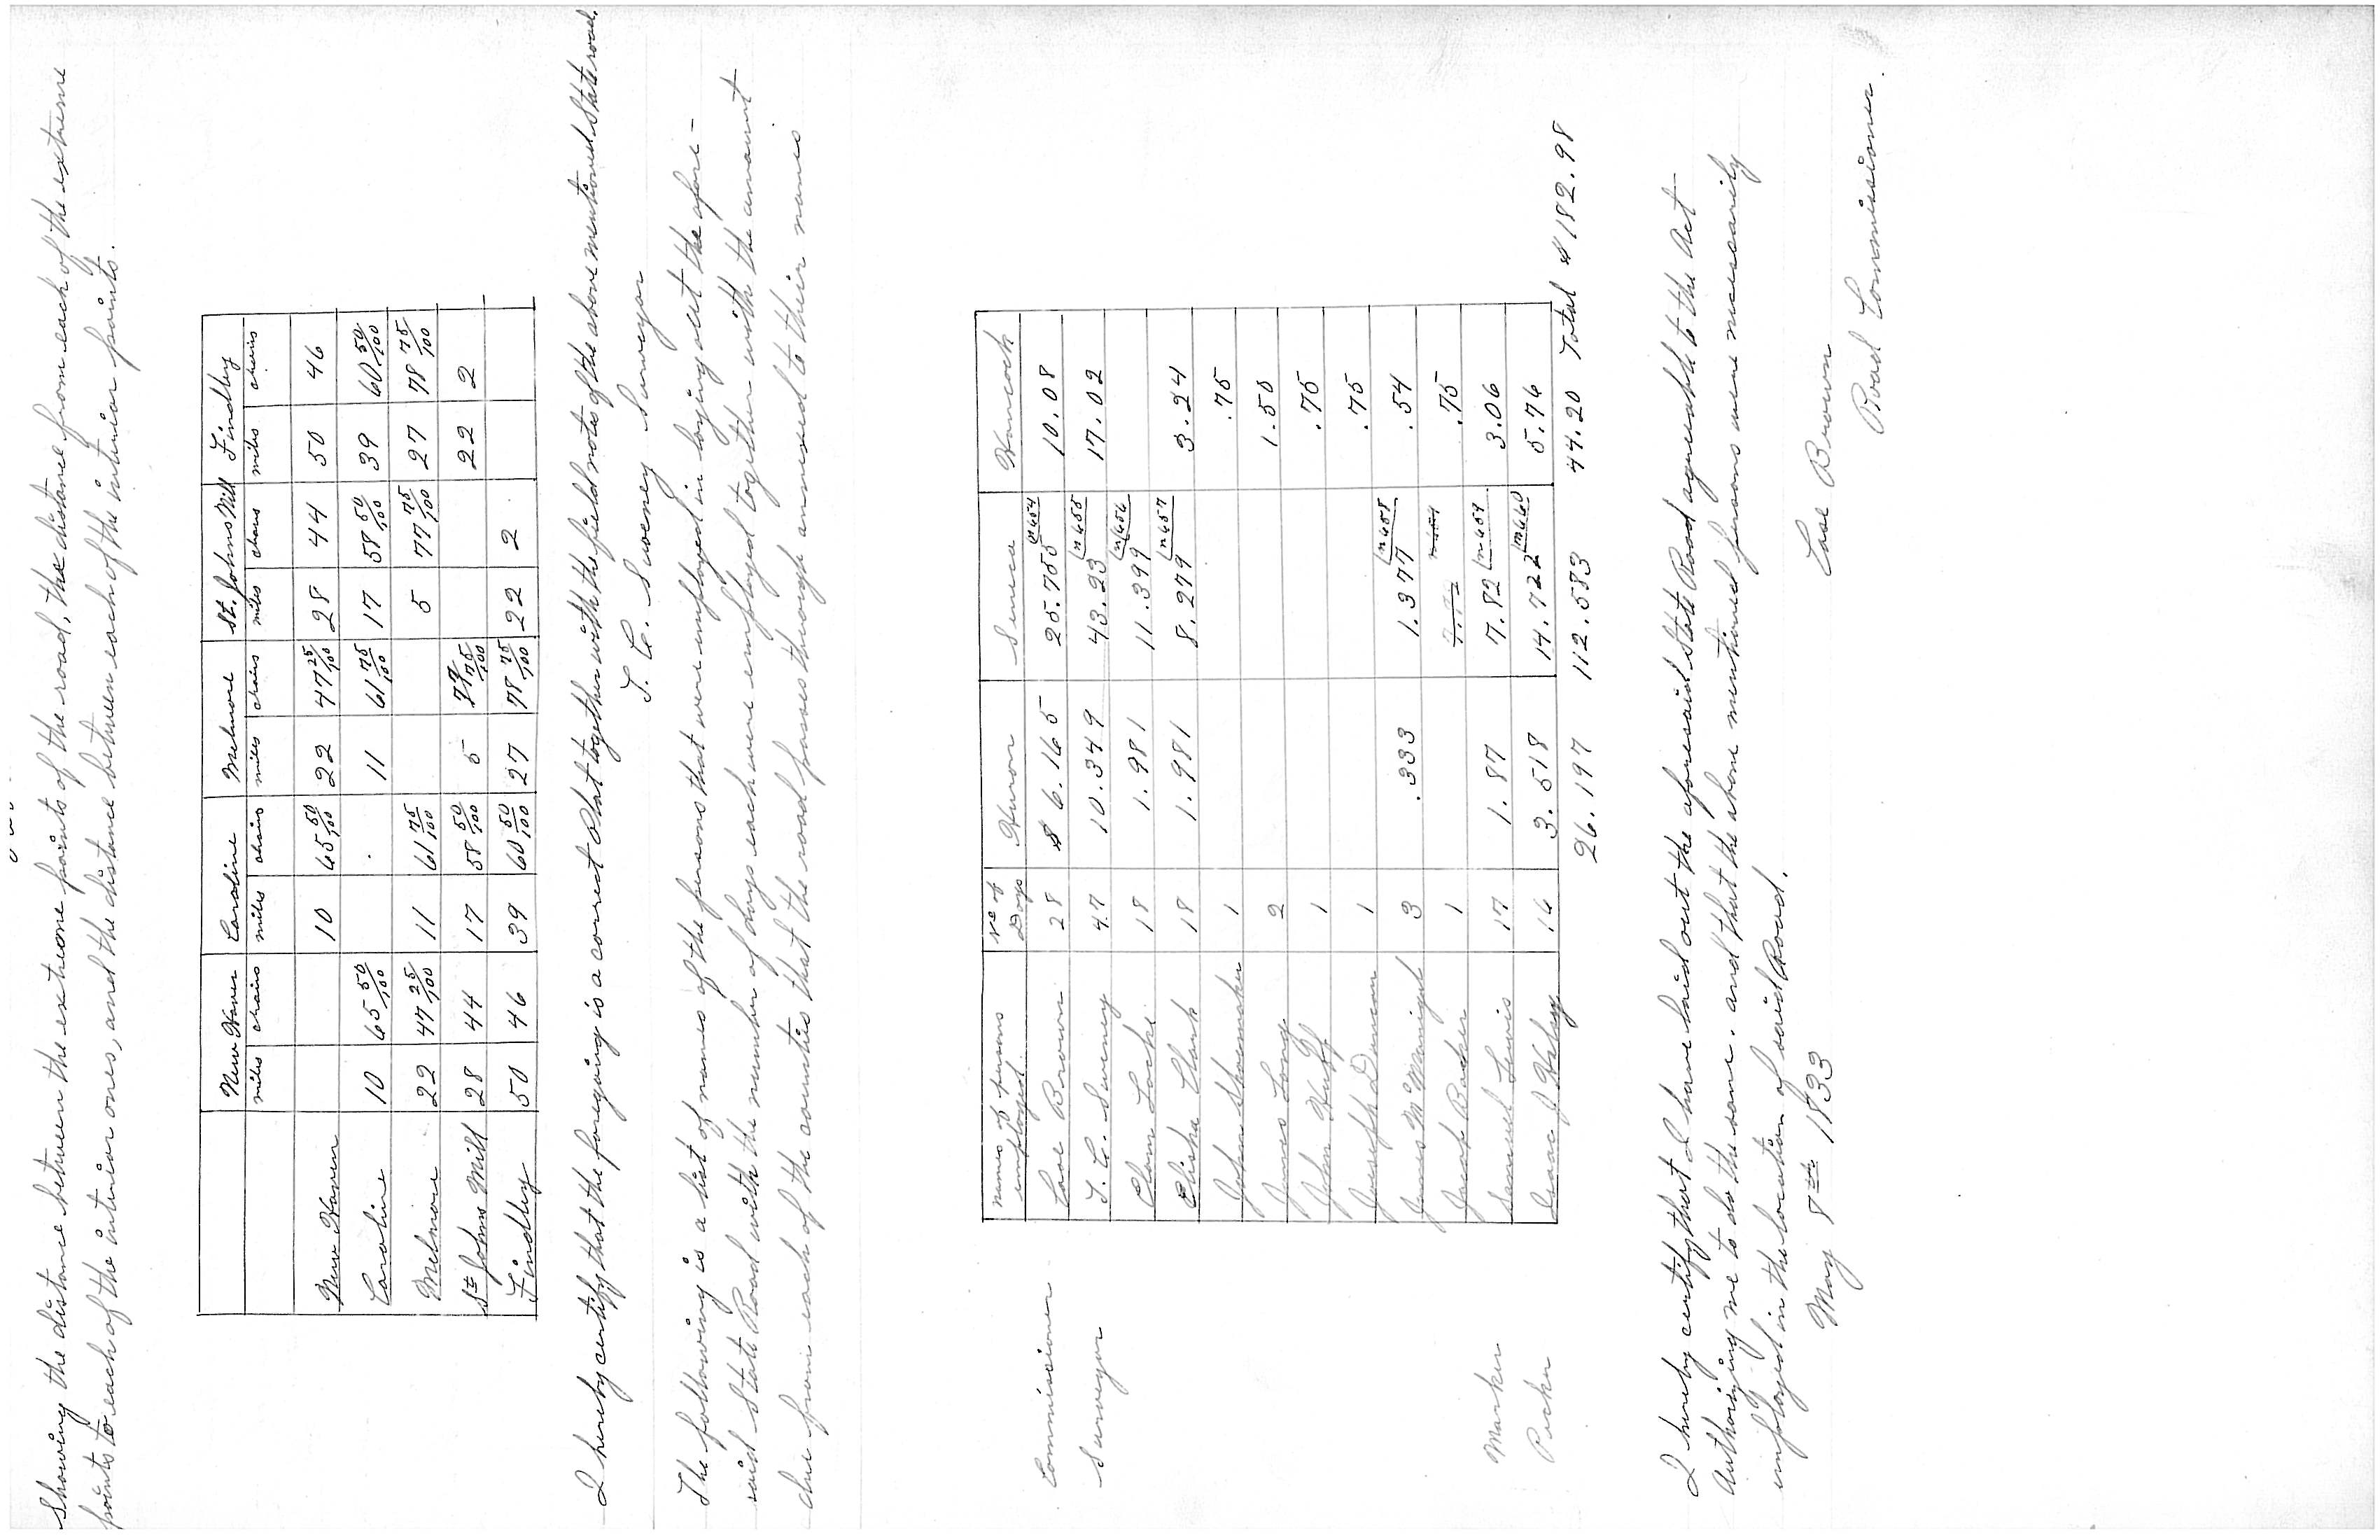 Showing the distance between the extreme points of the road, the distance from each of the extreme
points to each of the interior ones, and the distance between each of the interior points.
New Haven Caroline Melmore St. Johns Mill Findley
miles chains miles chains miles chains miles chains miles chains
New Haven 10 65 50/100 22 47 25/100 28 44 50 46
Caroline 10 65 50/100 11 61 75/100 17 58 50/100 39 60 50/100
Melmore 22 47 25/100 11 61 75/100 5 77 75/100 27 78 75/100
St Johns Mill 28 44 17 58 50/100 5 77 75/100 22 2
Findley 50 46 39 60 50/100 27 78 75/100 22 2
I hereby certify that the foregoing is a correct Plat together with the field notes of the above mentioned State road.
T. C. Sweney Surveyor
The following is a list of names of the persons that were employed in laying out the afore-
said State Road with the number of days each were employed together with the amount
due from each of the counties that the road passes through annexed to their names
Names of persons employed No of Days Huron Seneca Hancock
Commissioner Case Brown 28 $ 6.165 25.755 n 654 10.08
Surveyor T. C. Sweney 47 10.349 43.23 n 655 17.02
Elam Locke 18 1.981 11.399 n 656
Elisha Clark 18 1.981 8.279 n 657 3.24
John Shoemaker 1 .75
James Long 2 1.50
John Huff 1 .75
Joseph Duncan 1 .75
James McManigal 3 .333 1.377 n 658 .54
Jacob Bader 1 .75
Marker Samuel Lewis 17 1.87 7.82 n 659 3.06
Packer Isaac J Halsey 16 3.518 14.722 n 660 5.76
26.197 112.583 44.20 Total $ 182.98
I hereby certify that I have laid out the aforesaid State Road agreeable to the Act
Authorizing me to do the same. and that the above mentioned persons were necessarily
employed in the location of said Road.
May 8th 1833 Case Brown
Road Commissioner.